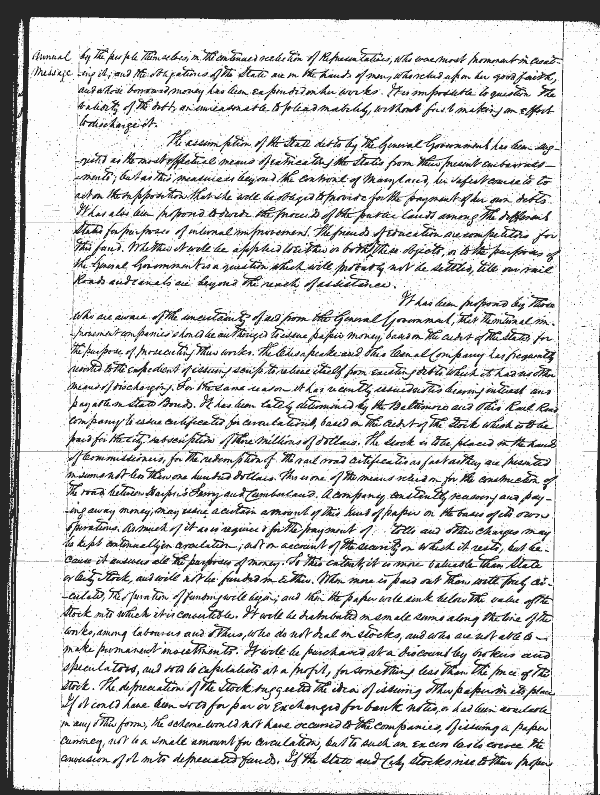 Annual
Message
by the people themselves, in the continued reelection of Representatives, who were most prominent in creat-
-ing it; and the obligations of the State are in the hands of men, who relied upon her good faith,
and whose borrowed money has been expended on her works. It is impossible to question the
validity of the debt, or unreasonable to plead inability, without first making an effort
to discharge it.
The assumption of the State debts by the General Government has been sug-
-gested as the most effectual means of extricating the States from their present embarrass-
-ments; but as this measure is beyond the control of Maryland, her safest course is to
act on the supposition that she will be obliged to provide for the payment of her own debts.
It has also been proposed to divide the proceeds of the public lands among the different
States for purposes of internal improvement. The friends of education are competitors for
this fund. Whether it will be applied to either or both of these objects, or to the purposes of
the General Government is a question which will probably not be settled, till our rail
Roads and canals are beyond the reach of assistance.
It has been proposed by those
who are aware of the uncertainty of aid from the General Government, that the internal im-
-provement companies should be authorized to issue paper money, based on the credit of the State, for
the purpose of prosecuting their works. The Chesapeake and Ohio Canal Company has frequently
resorted to the expedient of issuing scrip to relieve itself from existing debts which it had no other
means of discharging. For the same reason it has recently issued notes bearing interest and
payable in State Bonds. It has been lately determined by the Baltimore and Ohio Rail Road
company to issue certificates for circulation, based on the credit of the stock which is to be
paid for the city subscription of three millions of dollars. The stock is to be placed in the hands
of commissioners, for the redemption of the rail road certificates as fast as they are presented
in sums not less than one hundred dollars. This is one of the means relied on for the construction of
the road between Harper's Ferry and Cumberland. A company constantly receiving and pay-
-ing away money, may issue a certain amount of this kind of paper on the basis of its own
operations. As much of it as is required for the payment of tolls and other charges may
be kept continually in circulation, not on account of the security on which it rests, but be-
cause it answers all the purposes of money. To this extent, it is more valuable than State
or City stock, and will not be funded in either. When more is paid out than will freely cir-
-culate, the operation of funding will begin; and then the paper will sink below the value of the
stock into which it is convertible. It will be distributed in small sums along the line of the
works, among labourers and others, who do not deal in stocks, and who are not able to
make permanent investments. It will be purchased at a discount by brokers and
speculators, and sold to capitalists at a profit, for something less than the price of the
stock. The depreciation of the stock suggested the idea of issuing other paper in its place
If it could have been sold for par or exchanged for bank notes, or had been available
in any other form, the scheme would not have occurred to the companies, of issuing a paper
currency, not to a small amount for circulation, but to such an excess as to coerce the
conversion of it into depreciated funds. If the State and City stocks rise to their proper